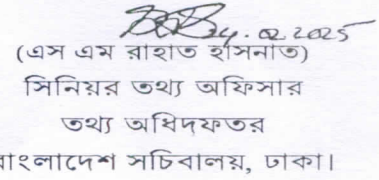 24.02.2025
(এস এম রাহাত হাসনাত)
সিনিয়র তথ্য অফিসার
তথ্য অধিদফতর
বাংলাদেশ সচিবালয়, ঢাকা।